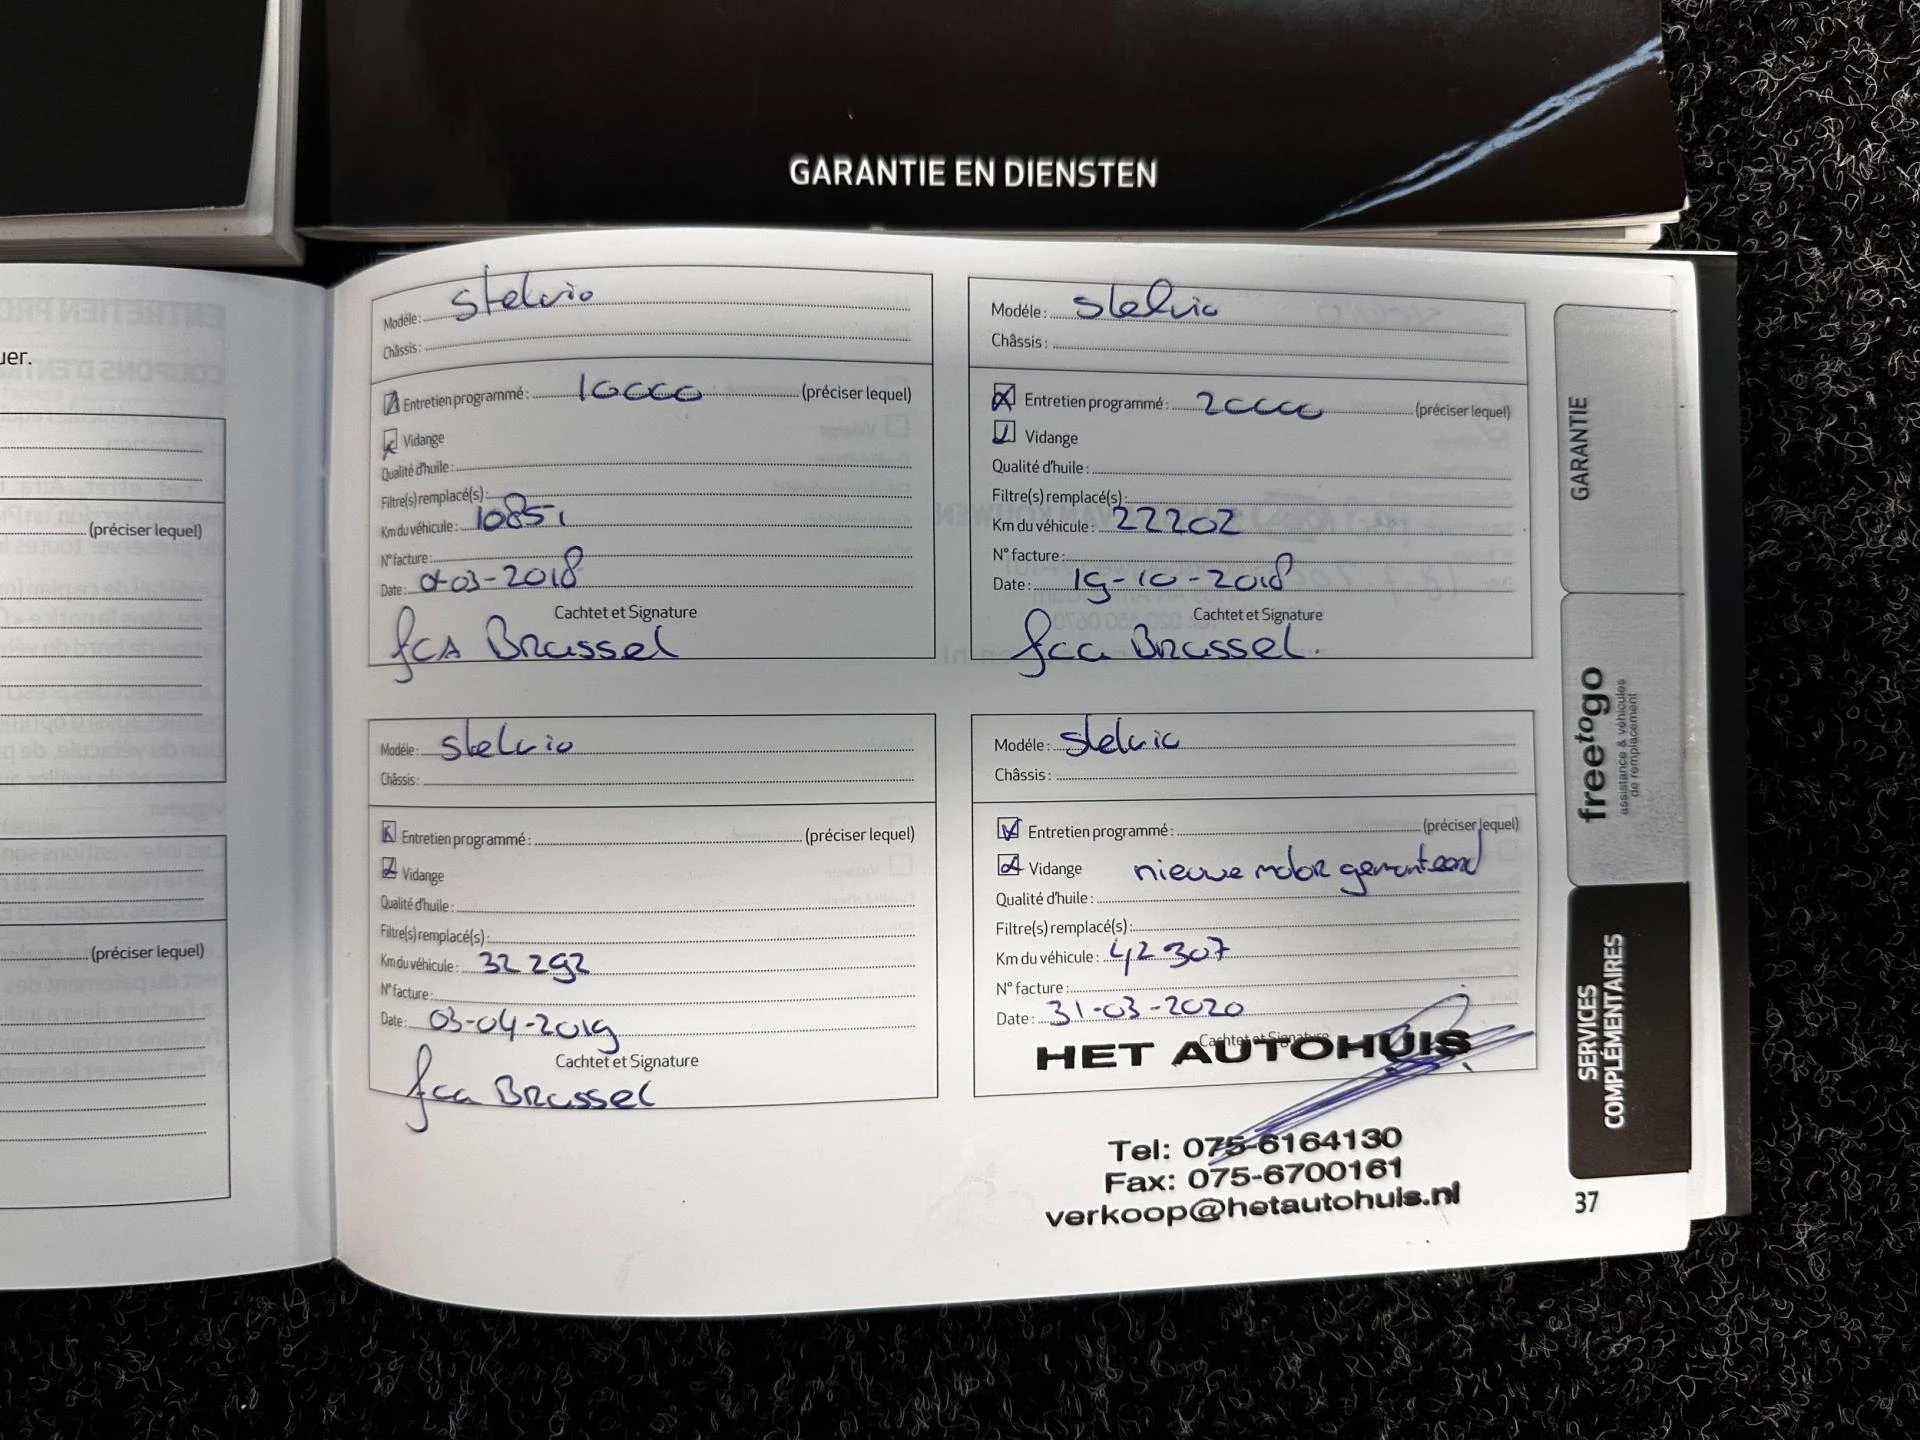 GARANTIE EN DIENSTEN
uer.
(préciser lequel)
(préciser lequel)
Modéle: Stelvio
Châssis:
Entretien programmé: 10000 (préciser lequel)
Vidange
Qualité d'huile:
Filtre(s) remplacé(s):
Km du véhicule: 10851
N° facture:
Date: 01-03-2018
Cachtet et Signature
fCA Brussel
Modéle: Stelvio
Châssis:
Entretien programmé: 20000 (préciser lequel)
Vidange
Qualité d'huile:
Filtre(s) remplacé(s):
Km du véhicule: 22202
N° facture:
Date: 19-10-2018
Cachtet et Signature
fca Brussel.
Modéle: Stelvio
Châssis:
Entretien programmé: (préciser lequel)
Vidange
Qualité d'huile:
Filtre(s) remplacé(s):
Km du véhicule: 32292
N° facture:
Date: 03-04-2019
Cachtet et Signature
fca Brussel
Modéle: Stelvio
Châssis:
Entretien programmé: (préciser lequel)
Vidange nieuwe motor gemonteerd
Qualité d'huile:
Filtre(s) remplacé(s):
Km du véhicule: 42307
N° facture:
Date: 31-03-2020
Cachtet et Signature
HET AUTOHUIS
Tel: 075-6164130
Fax: 075-6700161
verkoop@hetautohuis.nl
GARANTIE
freetogo
assistance & véhicules
de remplacement
SERVICES
COMPLÉMENTAIRES
37